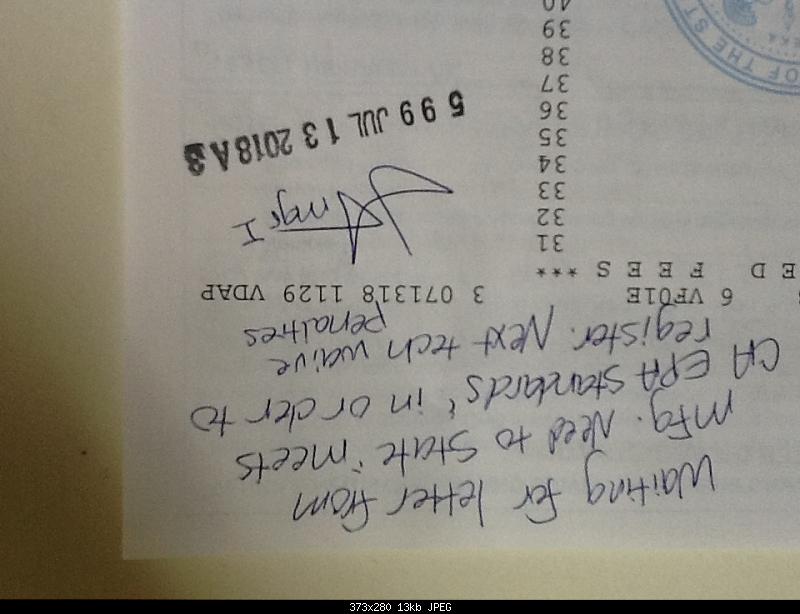 Waiting for letter from
mfg. Need to State "meets
CA EPA Standards" in order to
register. Next tech waive
penalties
6 VF01E 3 071318 1129 VDAP
E D F E E S ***
31
32
mgr I
33
34
35
599 JUL 13 2018 A3
36
37
38
39
40
OF THE ST
EKA
373x280 13kb JPEG